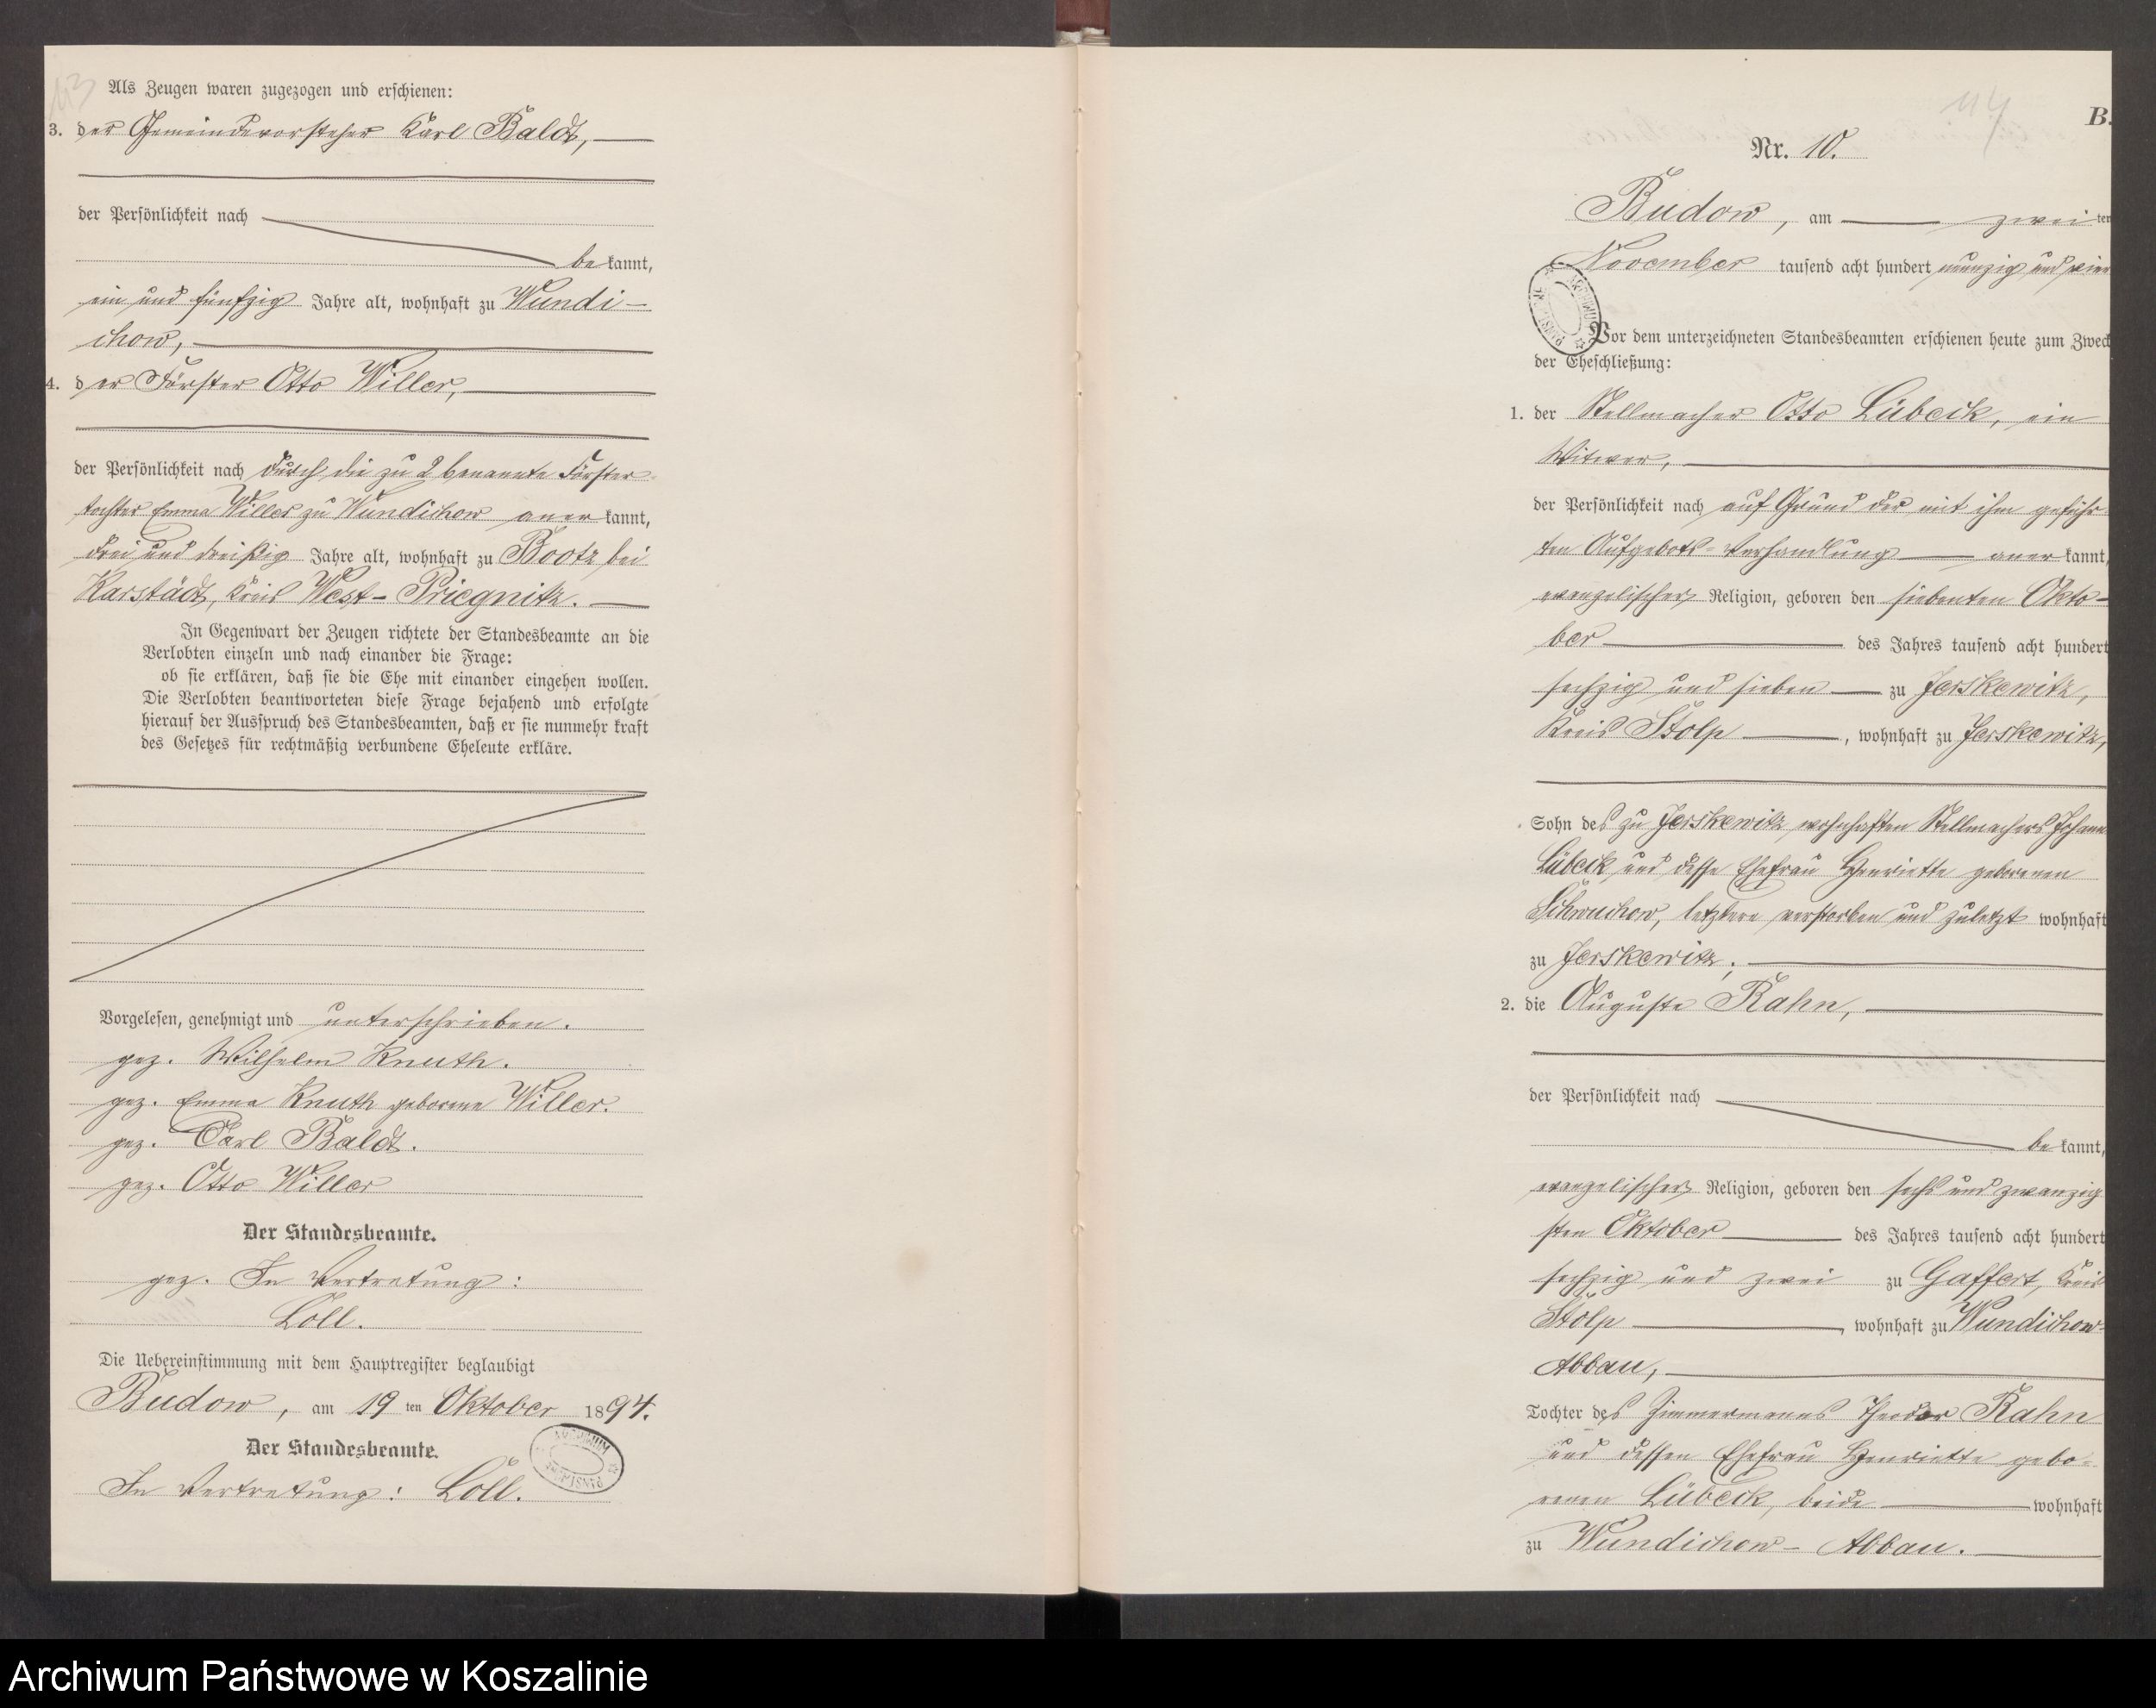 113
Als Zeugen waren zugezogen und erschienen:
3. der Gemeindevorsteher Karl Baldt,
der Persönlichkeit nach
bekannt,
ein und fünfzig Jahre alt, wohnhaft zu Wundi-
chow,
4. der Förster Otto Willer,
der Persönlichkeit nach durch die zu 2 benannte Förster-
tochter Emma Willer zu Wundichow anerkannt,
drei und dreißig Jahre alt, wohnhaft zu Bootz bei
Karstädt, Kreis West-Priegnitz.
In Gegenwart der Zeugen richtete der Standesbeamte an die
Verlobten einzeln und nach einander die Frage:
ob sie erklären, daß sie die Ehe mit einander eingehen wollen.
Die Verlobten beantworteten diese Frage bejahend und erfolgte
hierauf der Ausspruch des Standesbeamten, daß er sie nunmehr kraft
des Gesetzes für rechtmäßig verbundene Eheleute erkläre.
Vorgelesen, genehmigt und unterschrieben.
gez. Wilhelm Knuth.
gez. Emma Knuth geborene Willer.
gez. Carl Baldt.
gez. Otto Willer
Der Standesbeamte.
gez. In Vertretung:
Löll.
Die Uebereinstimmung mit dem Hauptregister beglaubigt
Budow, am 19 ten Oktober 1894.
Der Standesbeamte.
In Vertretung: Löll.
114
B.
Nr. 10.
Budow, am zwei ten
November tausend acht hundert neunzig und vier
Vor dem unterzeichneten Standesbeamten erschienen heute zum Zweck
der Eheschließung:
1. der Stellmacher Otto Lübeck, ein
Witwer,
der Persönlichkeit nach auf Grund der mit ihm geführ-
ten Aufgebots-Verhandlung anerkannt,
evangelischer Religion, geboren den siebenten Okto-
ber des Jahres tausend acht hundert
sechzig und sieben zu Jerskewitz,
Kreis Stolp, wohnhaft zu Jerskewitz,
Sohn des zu Jerskewitz wohnhaften Stellmachers Johann
Lübeck und desse Ehefrau Henriette geborenen
Schwuchow, letztere verstorben und zuletzt wohnhaft
zu Jerskewitz;
2. die Auguste Rahn,
der Persönlichkeit nach
bekannt,
evangelischer Religion, geboren den sechs und zwanzig
sten Oktober des Jahres tausend acht hundert
sechzig und zwei zu Gaffert, Kreis
Stolp, wohnhaft zu Wundichow-
Abbau,
Tochter des Zimmermanns Theodor Rahn
und dessen Ehefrau Henriette gebo-
renen Lübeck, beide wohnhaft
zu Wundichow-Abbau.
Archiwum Państwowe w Koszalinie